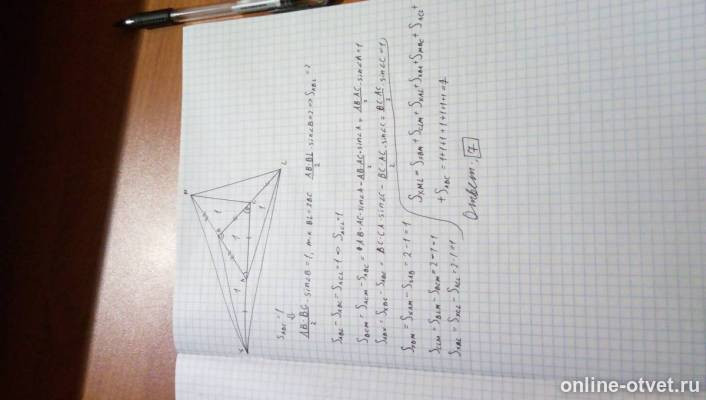 S_ABC = 1
AB·BC/2 · sin∠B = 1, т.к BL = 2BC AB·BL/2 · sin∠B = 2 => S_ABL = 2
S_ABL - S_ABC = S_ACL = 1 => S_ACL = 1
S_BCM = S_ACM - S_ABC = AB·AC·sin∠A - AB·AC/2 · sin∠A = AB·AC/2 · sin∠A = 1
S_ABK = S_KBC - S_ABC = BC·CA·sin∠C - BC·AC/2 · sin∠C = BC·AC/2 · sin∠C = 1
S_KBM = S_KAM - S_KAB = 2-1=1
S_CLM = S_BLM - S_BCM = 2-1=1
= 2-1=1
S_KML = S_KBM + S_CLM + S_KAL + S_KBA + S_MBC + S_ACL +
+ S_ABC = 1+1+1+1+1+1+1=7
Ответ: 7
online-otvet.ru